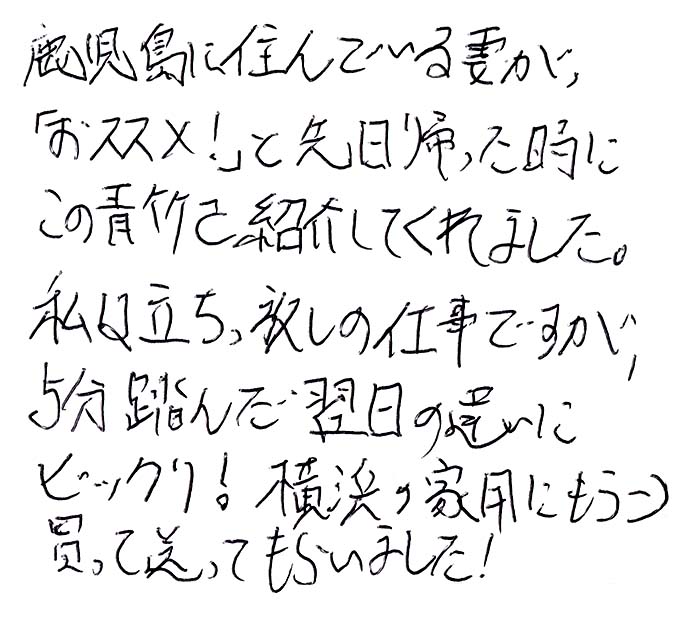 鹿児島に住んでいる妻が、
「おススメ!」と先日帰った時に
この青竹を紹介してくれました。
私は立ちっ放しの仕事ですが、
5分踏んだ翌日の違いに
ビックリ!横浜の家用にもう一つ
買って送ってもらいました!